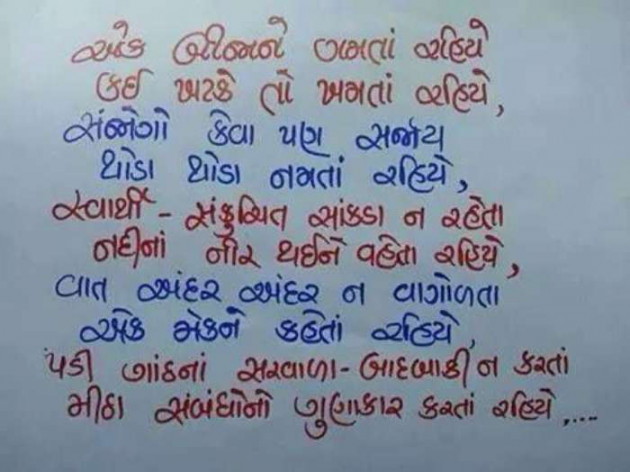 એક બીજાને ગમતાં રહિયે
કઈ ખટકે તો ખમતાં રહિયે,
સંજોગો કેવા પણ સર્જાય
થોડા થોડા નમતાં રહિયે,
સ્વાર્થી - સંકુચિત સાંકડા ન રહેતા
નદીનાં નીર થઈને વહેતા રહિયે,
વાત અંદર અંદર ન વાગોળતા
એક મેકને કહેતાં રહિયે,
પડી ગાંઠનાં સરવાળા - બાદબાકી ન કરતાં
મીઠા સંબંધોનો ગુણાકાર કરતાં રહિયે,....